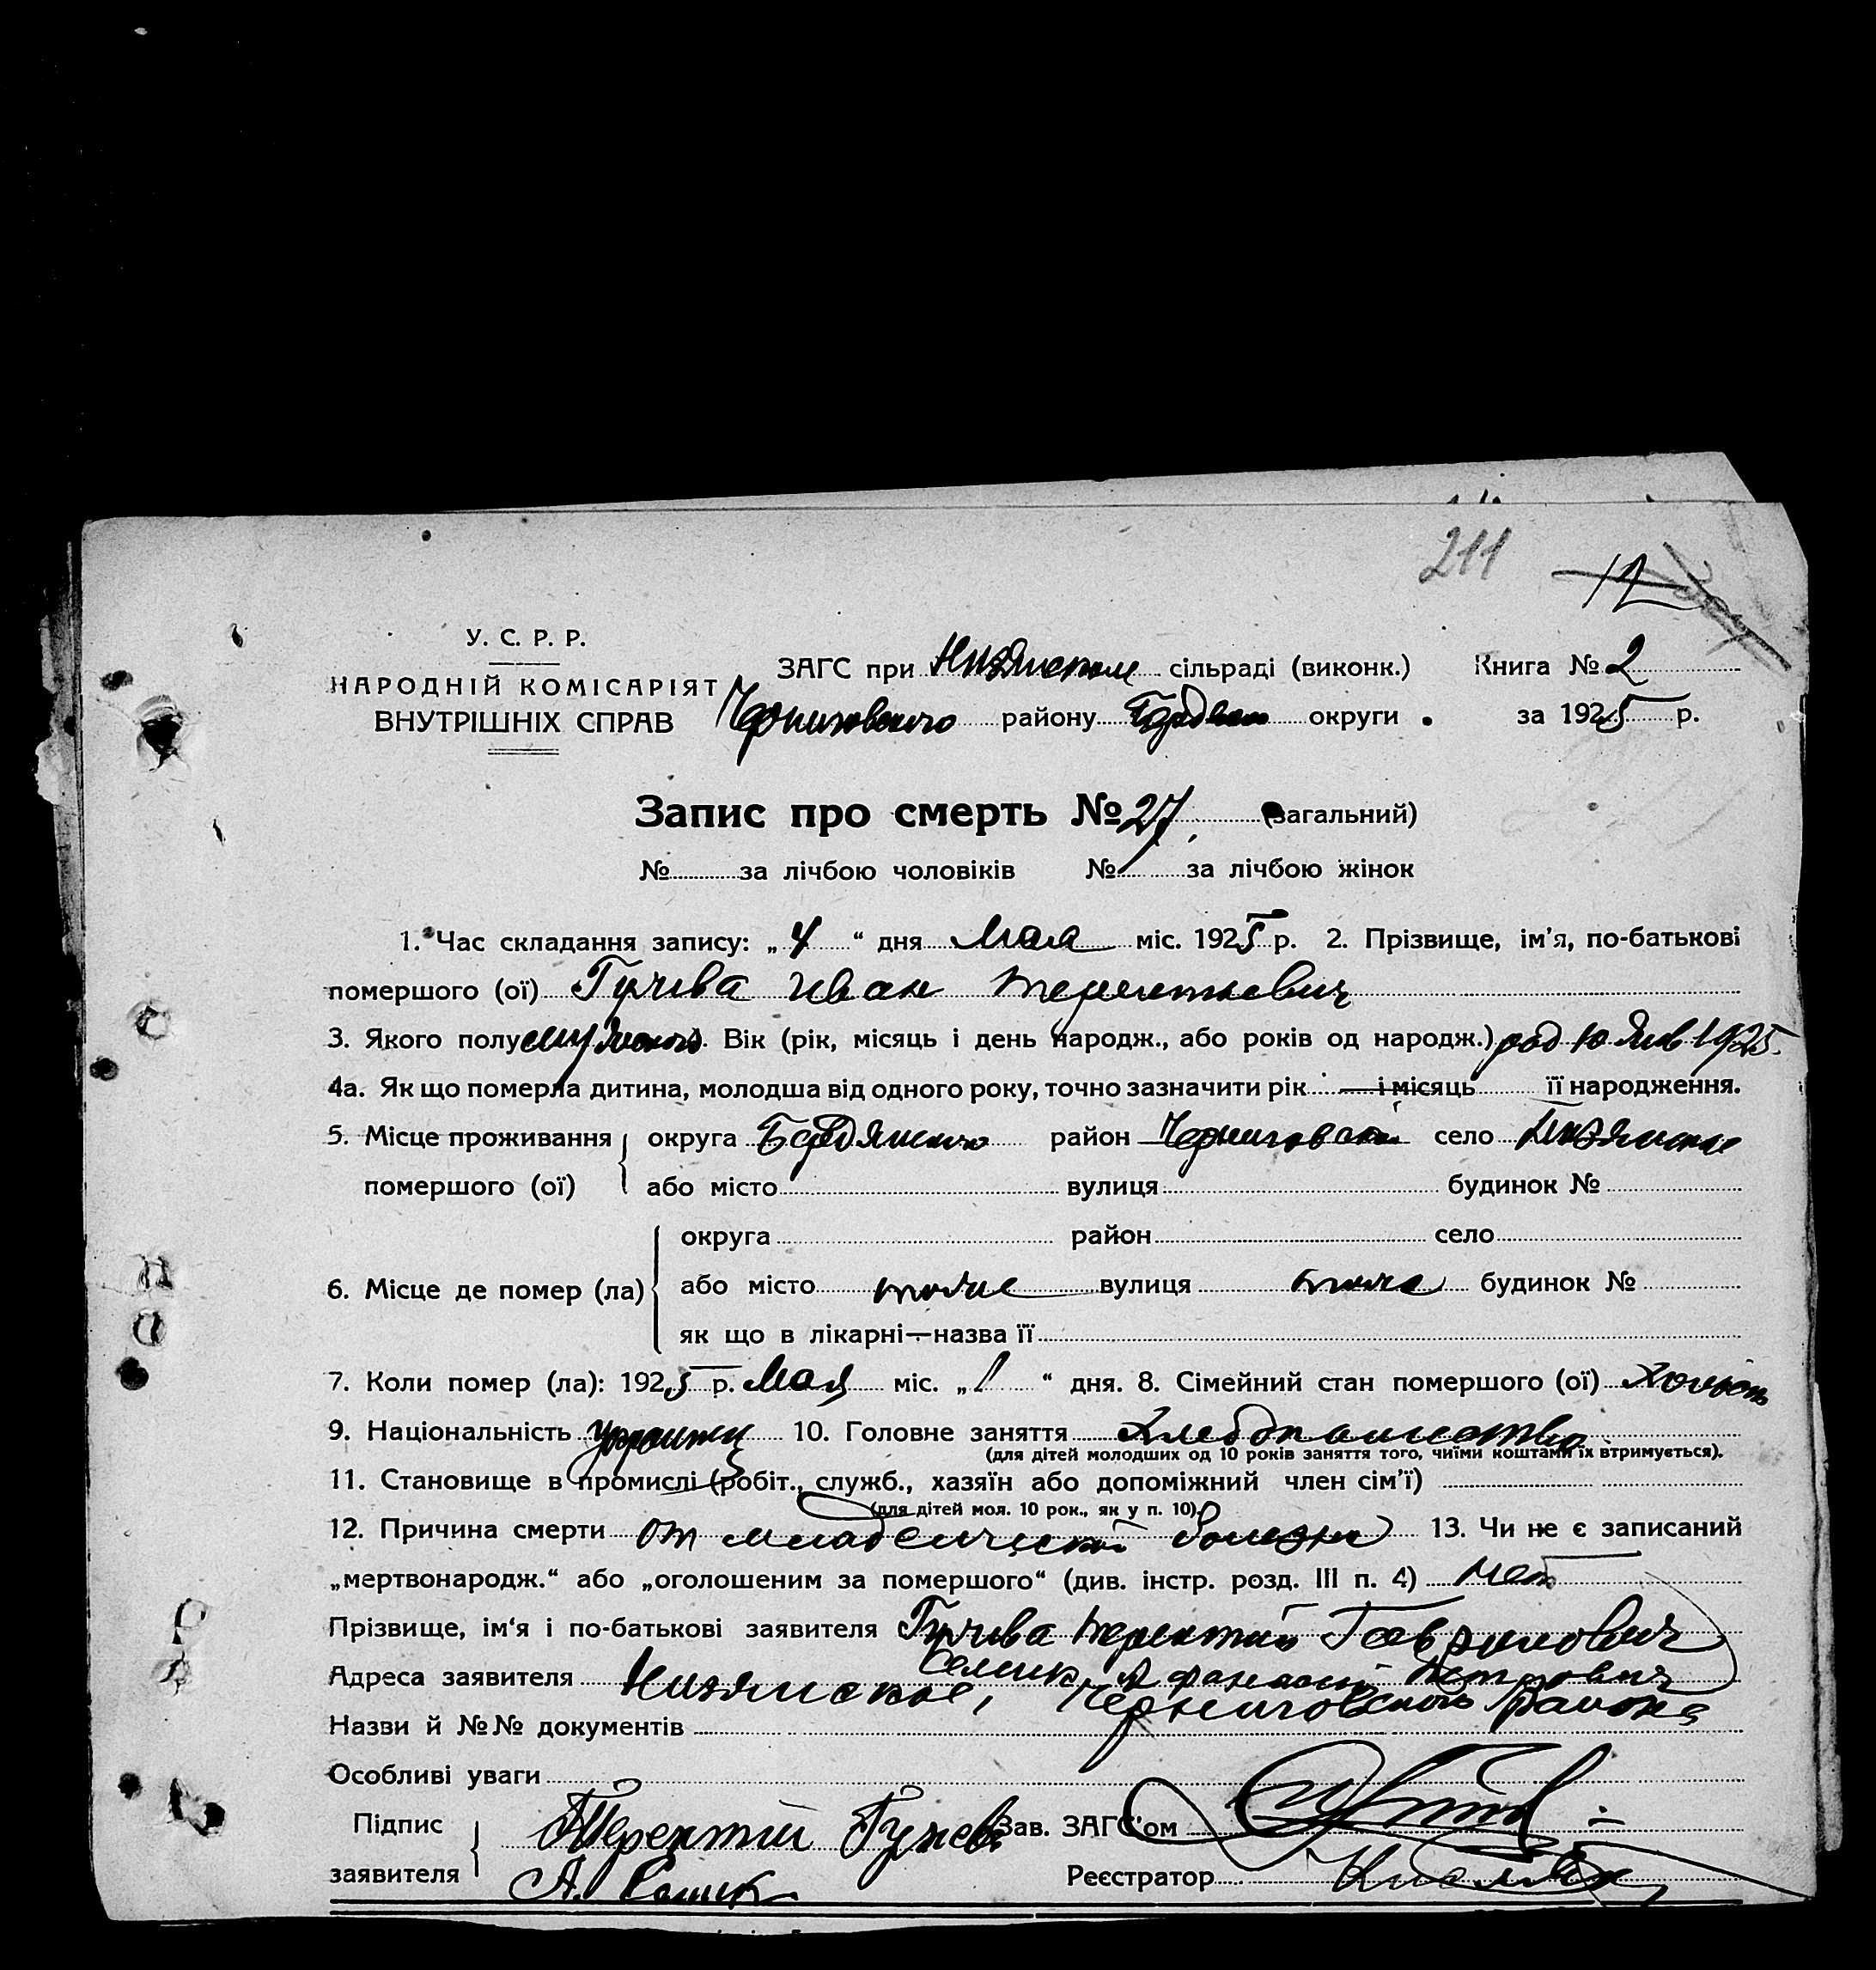 211
12
У. С. Р. Р.
НАРОДНІЙ КОМІСАРІЯТ
ВНУТРІШНІХ СПРАВ
ЗАГС при Низянском сільраді (виконк.) Книга № 2
Черниговского району Бердян округи за 1925 р.
Запис про смерть № 27 (загальний)
№ за лічбою чоловіків № за лічбою жінок
1. Час складання запису: „4“ дня Мая міс. 1925 р. 2. Прізвище, ім'я, по-батькові
помершого (ої) Гужва Иван Терентьевич
3. Якого полу мужского. Вік (рік, місяць і день народж., або років од народж.) род 10 Янв 1925
4а. Як що померла дитина, молодша від одного року, точно зазначити рік — і місяць її народження.
5. Місце проживання округа Бердянского район Черниговский село Низянское
помершого (ої) або місто вулиця будинок №
округа район село
6. Місце де помер (ла) або місто тоже вулиця тоже будинок №
як що в лікарні—назва її
7. Коли помер (ла): 1925 р. Мая міс. „1“ дня. 8. Сімейний стан помершого (ої) Холост
9. Національність украинец 10. Головне заняття Хлебопашество
(для дітей молодших од 10 років заняття того, чиїми коштами їх втримується).
11. Становище в промислі (робіт., служб., хазяїн або допоміжний член сім'ї)
(для дітей мол. 10 рок., як у п. 10)
12. Причина смерти От младенческой болезни 13. Чи не є записаний
„мертвонародж.“ або „оголошеним за помершого“ (див. інстр. розд. III п. 4) Нет
Прізвище, ім'я і по-батькові заявителя Гужва Терентий Гаврилович
Афанасий Петрович
Адреса заявителя Низянское, Черниговского Района
Назви й №№ документів
Особливі уваги
Підпис Терентий Гужва Зав. ЗАГС'ом
заявителя А. Реєстратор